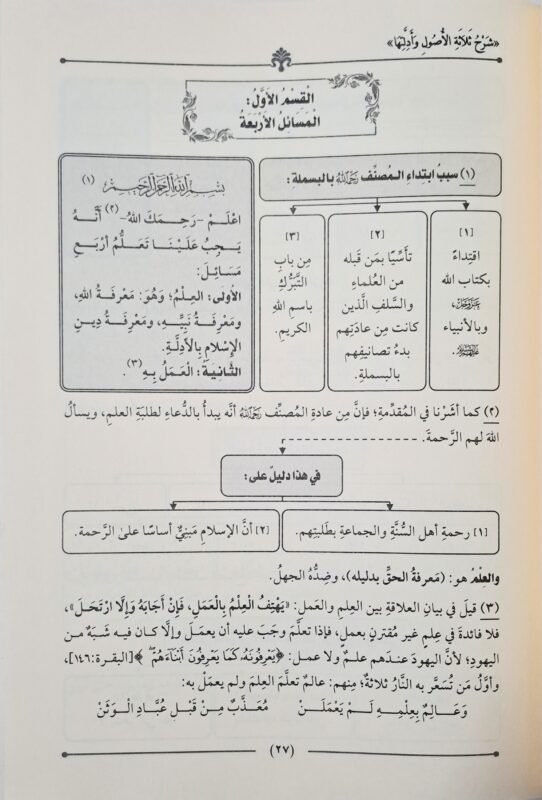 «شَرْحُ ثَلَاثَةِ الأُصُولِ وَأَدِلَّتِهَا»
القِسْمُ الأَوَّلُ:
المَسَائِلُ الأَرْبَعَةُ
(١) سببُ ابتداءِ المُصنِّف رَحِمَهُ اللَّهُ بالبسملة:
[١]
اقتِداءً
بكتاب الله
عَزَّ وَجَلَّ،
وبالأنبياء
عَلَيْهِمُ السَّلَامُ.
[٢]
تأسِّيًا بمَن قبله
من العُلماءِ
والسَّلفِ الَّذين
كانت مِن عادَتِهم
بدءُ تصانيفِهم
بالبسملةِ.
[٣]
مِن بابِ
التَّبَرُّكِ
باسمِ اللهِ
الكريمِ.
بِسْمِ اللَّهِ الرَّحْمَنِ الرَّحِيمِ (١)
اعْلَمْ -رَحِمَكَ اللهُ-(٢) أَنَّهُ
يَجِبُ عَلَيْنَا تَعَلُّمُ أَرْبَعِ
مَسَائِلَ:
الأُولَى: العِلْمُ؛ وَهُوَ: مَعْرِفَةُ اللهِ،
وَمَعْرِفَةُ نَبِيِّهِ، وَمَعْرِفَةُ دِينِ
الإِسْلَامِ بِالأَدِلَّةِ.
الثَّانِيَةُ: الْعَمَلُ بِهِ(٣).
(٢) كما أشَرْنا في المُقدِّمةِ؛ فإنَّ مِن عادَةِ المُصنِّف رَحِمَهُ اللَّهُ أنَّه يبدأُ بالدُّعاءِ لطلبَةِ العلمِ، ويسألُ
اللهَ لهم الرَّحمةَ.
في هذا دليلٌ على:
[١] رحمةِ أهل السُّنَّةِ والجماعةِ بطَلبتِهم.
[٢] أنَّ الإسلامَ مَبنِيٌّ أساسًا على الرَّحمة.
والعِلْمُ هو: (مَعرفةُ الحقِّ بدليله)، وضِدُّهُ الجهلُ.
(٣) قيلَ في بيانِ العلاقةِ بين العِلمِ والعَملِ: «يَهْتِفُ الْعِلْمُ بِالْعَمَلِ، فَإِنْ أَجَابَهُ وَإِلَّا ارْتَحَلَ»،
فلا فائدةَ في عِلمٍ غيرِ مُقترِنٍ بعملٍ، فإذا تعلَّمَ وجَبَ عليه أن يعملَ وإلَّا كان فيه شَبَهٌ من
اليهودِ؛ لأنَّ اليهودَ عندَهم علمٌ ولا عمل: ﴿يَعْرِفُونَهُ كَمَا يَعْرِفُونَ أَبْنَاءَهُمْ﴾ [البقرة:١٤٦]،
وأوَّلُ مَن تُسعَّر به النَّارُ ثلاثةٌ؛ مِنهم: عالمٌ تعلَّمَ العِلمَ ولم يعملْ به:
وَعَالِمٌ بِعِلْمِهِ لَمْ يَعْمَلَنْ مُعَذَّبٌ مِنْ قَبْلِ عُبَّادِ الْوَثَنْ
(٢٧)